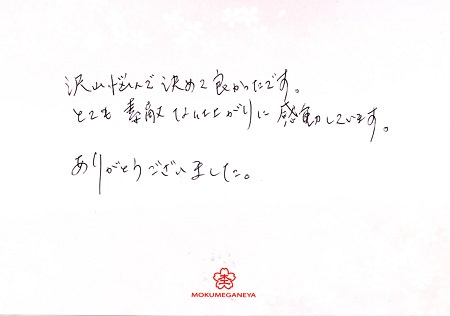 沢山悩んで決めて良かったです。
とても素敵な仕上がりに感動しています。
ありがとうございました。
MOKUMEGANEYA